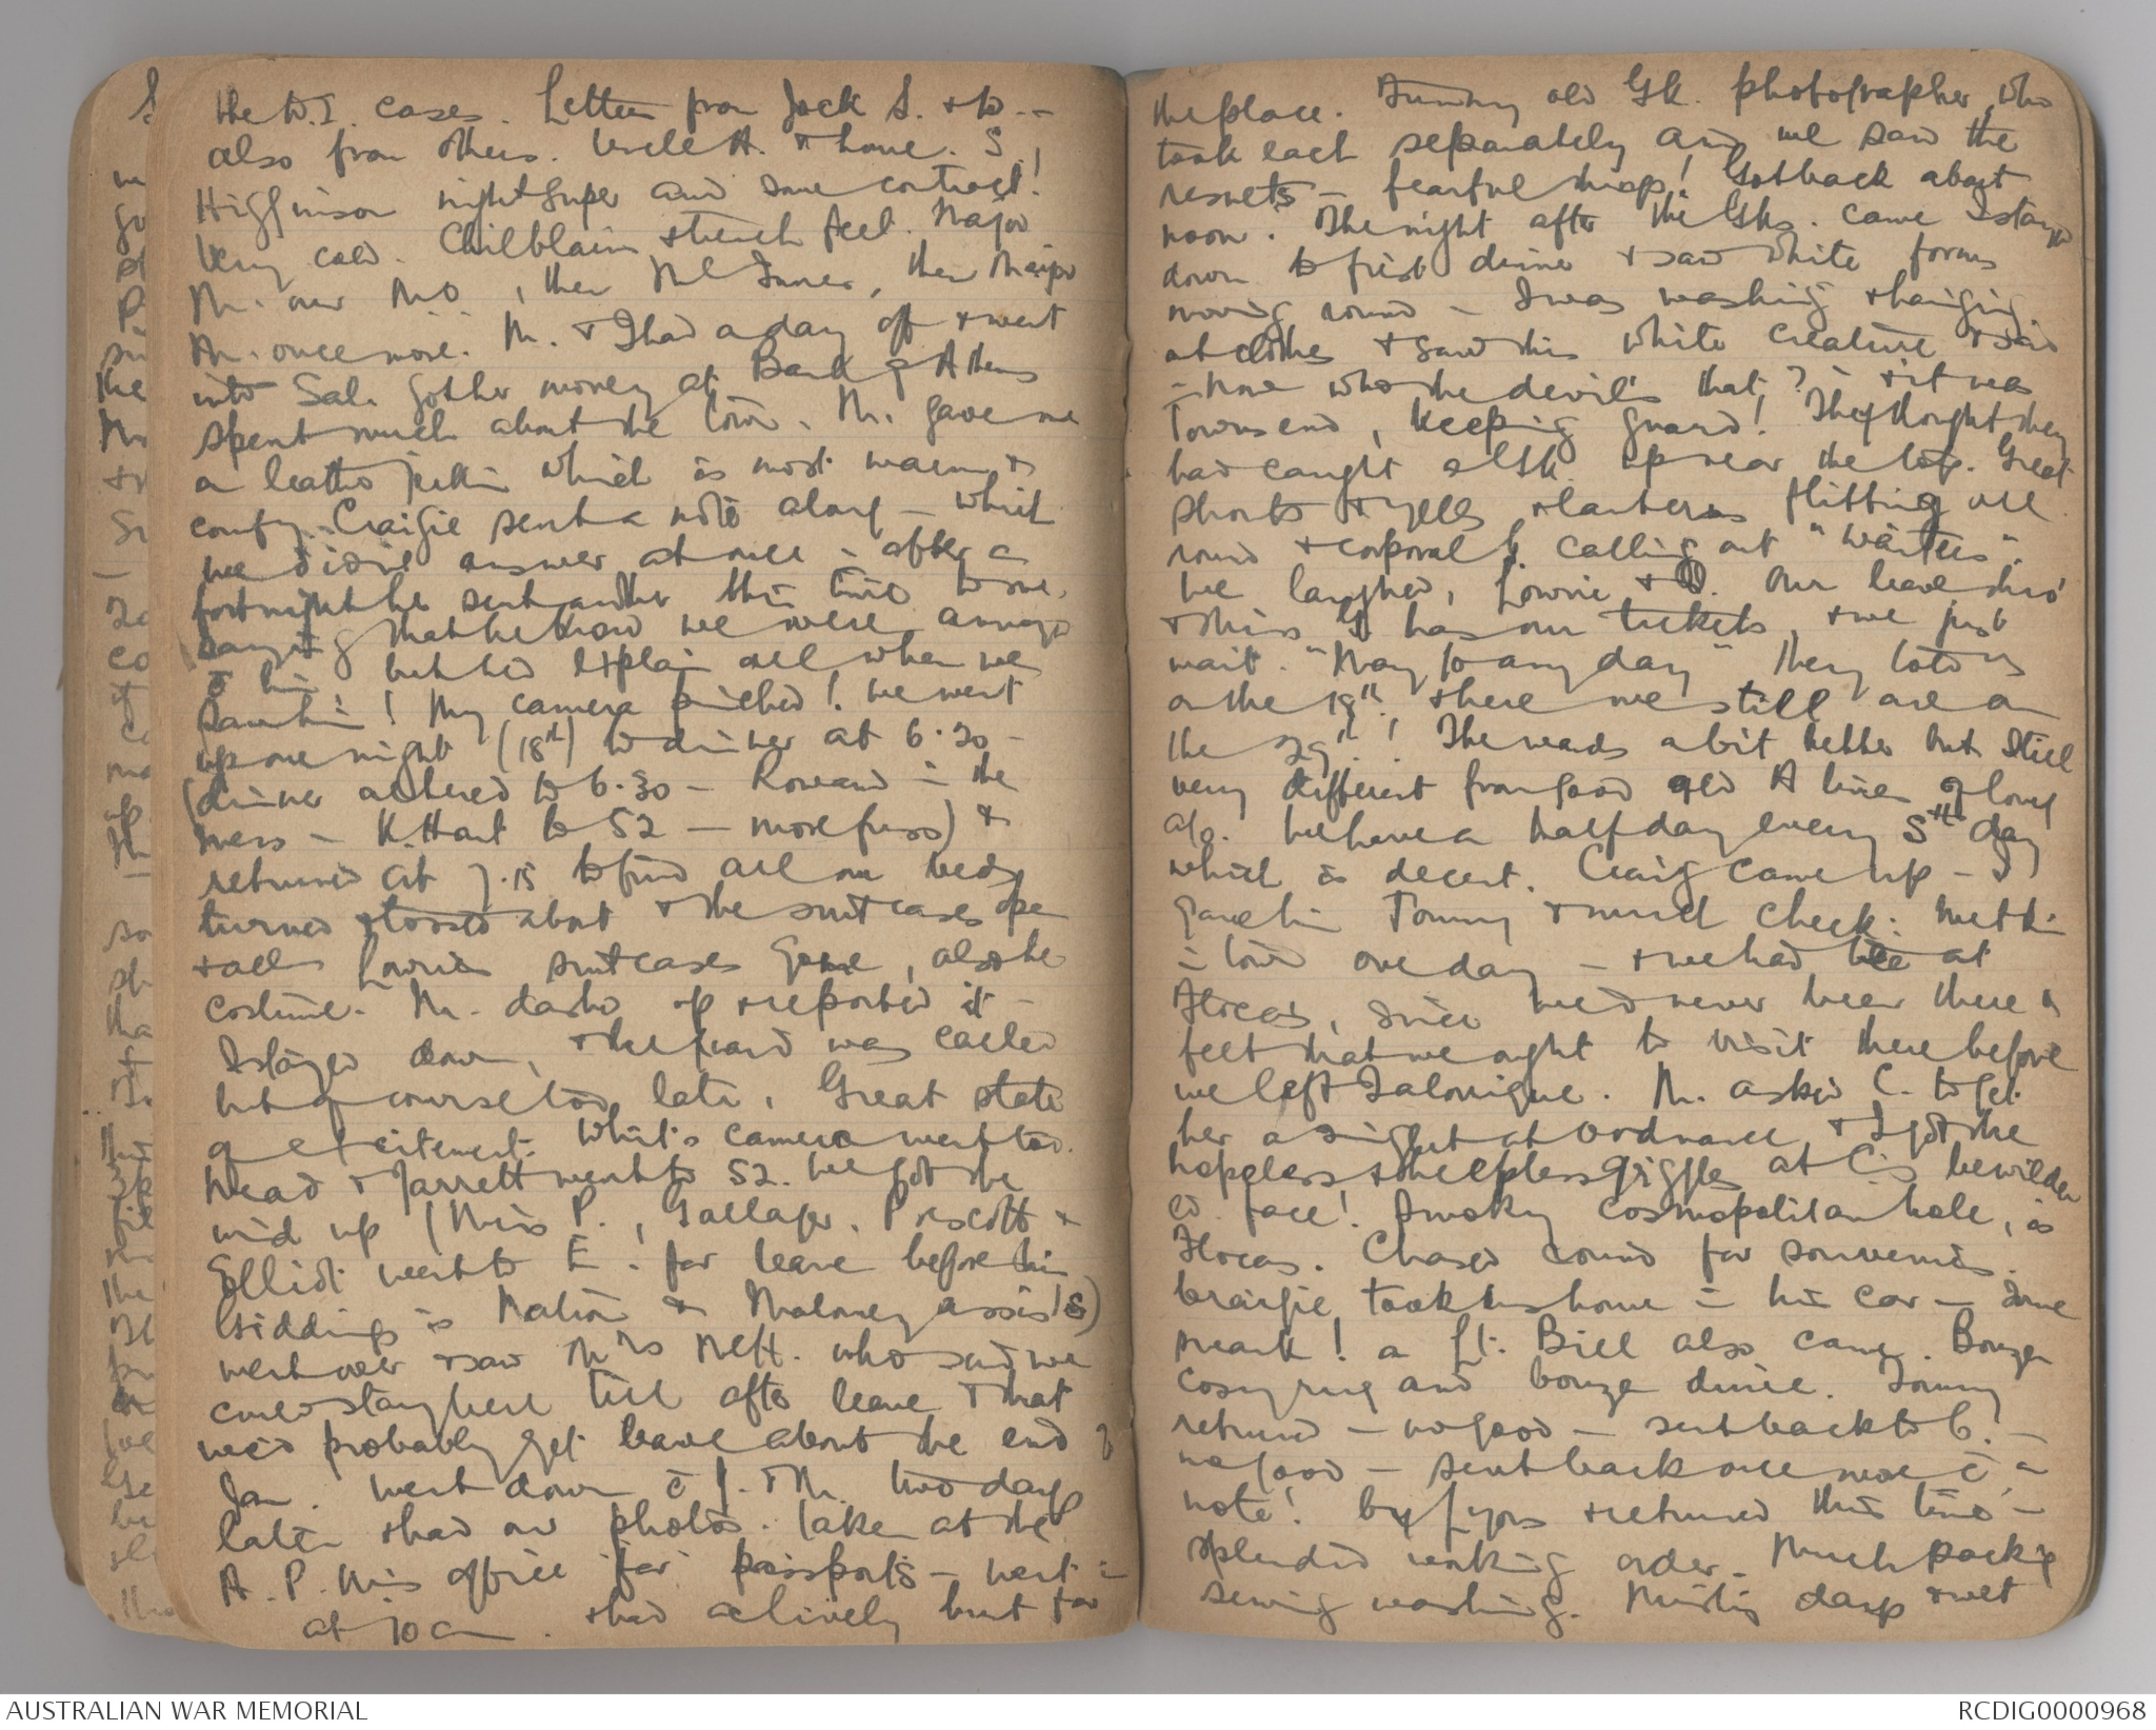 the D.I. cases. Letter from Jack S. + to --
also from others. Uncle A. + home. S
Higginson night Super and some contrast!
Very cold. Chilblain + trench feet. Major
M. our MO, then McInnes, then Major
M. once more. M. + I had a day off + went
into Sal. Got her money at Bank of Athens
spent much about the town. M. gave me
a leather jerkin which is most warm +
comfy. Craigie sent a note along - which
we didn't answer at once - after a
fortnight he sent another this time to me.
saying that he knew we were annoyed
 him but he'd explain all when we
saw him! My camera pinched! We went
up one night (18th) to dinner at 6.30 -
(dinner altered to 6.30 - Rowand in the
mess - K. Hart to 52 - more fuss) &
returned at 7.15 to find all our beds
turned + tossed about + the suitcases open
+ all Lowrie's suitcases gone, also the
costume. M. dashed up + reported it -
I stayed down, + the guard was called
but of course too late. Great state
of excitement. White's camera went too.
Mead + Jarrett went to 52. We got the
wind up (Miss P., Gallager, Prescott +
Elliot went to E. for leave before this
Giddings is Matron & Maloney assis't)
went over + saw Mrs McH. who said we
could stay here till after leave + that
we'd probably get leave about the end of
Jan. Went down c̄ J. + M. two days
later + had our photos. taken at the
A.P.M's office for passports - went in
at 10 am. + had a lively hunt for
the place. Funny old Gk. photographer, who
took each separately and we saw the
results - fearful! Got back about
noon. The night after the Gks. came I stayed
down to first dinner + saw white forms
moving round - I was washing + hanging
out clothes + saw this white creature + said
- Now who the devil's that? - + it was
Townsend, keeping guard! They thought they
had caught a Gk. up near the top. Great
shouts + yells + lanterns flitting all
round + corporal calling out "
We laughed, Lowrie + I. Our leave thro'
+ Miss G has our tickets, + we just
wait. "May 10 any day" they told us
on the 18th, + here we still are on
the 29th! The wards a bit better but still
very different from good old A lines of long
ago. We have a half day every 5th day
which is decent. Craig came up - I
gave him Tommy + much cheek. Met him
in town one day - + we had tea at
Flocas, since we'd never been there &
felt that we ought to visit there before
we left Salonique. M. asked C. to get
her a at ordnance, + I got the
hopeless + helpless giggles at C's bewilder
ed face! Smoky cosmopolitan hole, is
Flocas. Chased round for souvenirs.
Craigie took us home in his car - some
swank! a Lt. Bill also came. Bonza
cosy rug and bonza drive. Tommy
returned - no good - sent back to C. -
no good - sent back once more c̄ a
note! + returned this time -
splendid working order. Much packing
sewing washing. Misty days + wet
AUSTRALIAN WAR MEMORIAL
RCDIG0000968